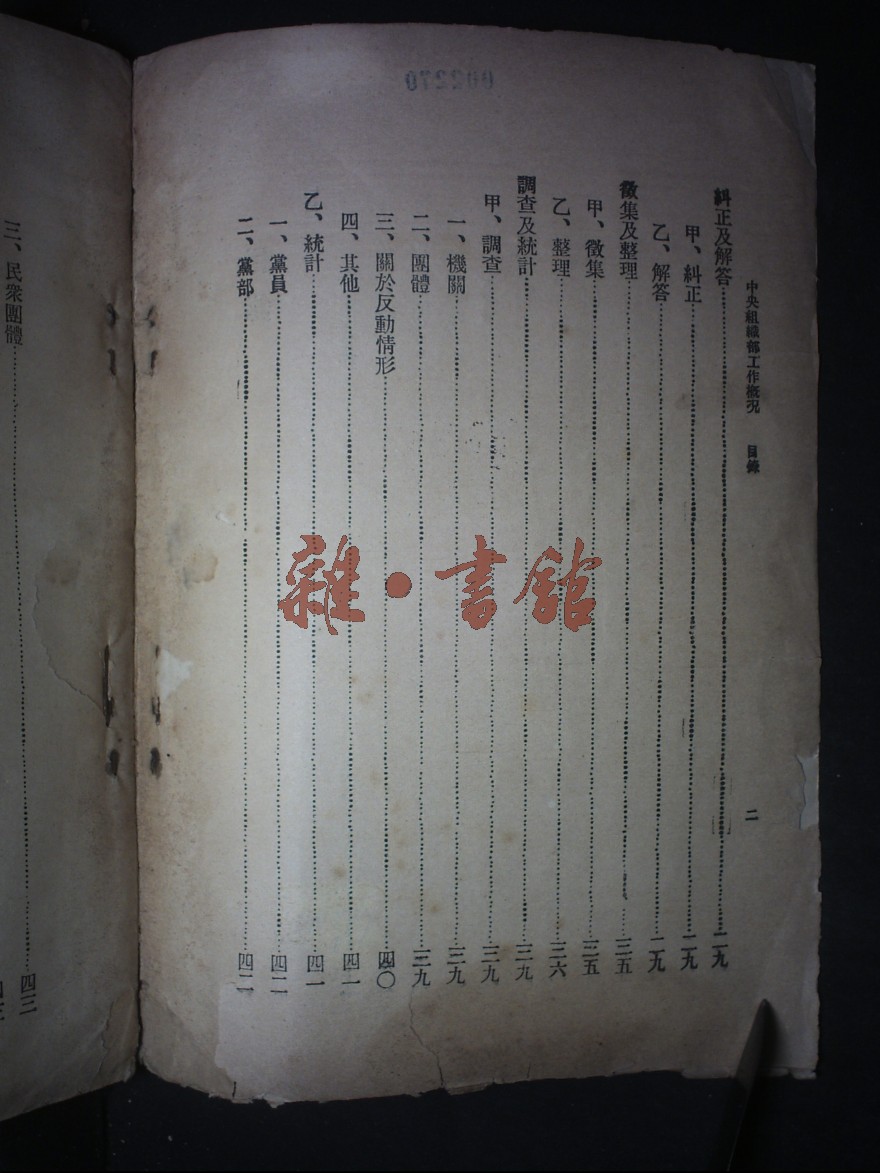 002270
中央組織部工作概況 目錄 二
糾正及解答……二九
甲、糾正……二九
乙、解答……二九
徵集及整理……三五
甲、徵集……三五
乙、整理……三六
調查及統計……三九
甲、調查……三九
一、機關……三九
二、團體……三九
三、關於反動情形……四〇
四、其他……四一
乙、統計……四一
一、黨員……四二
二、黨部……四二
三、民衆團體……四三
雜·書館